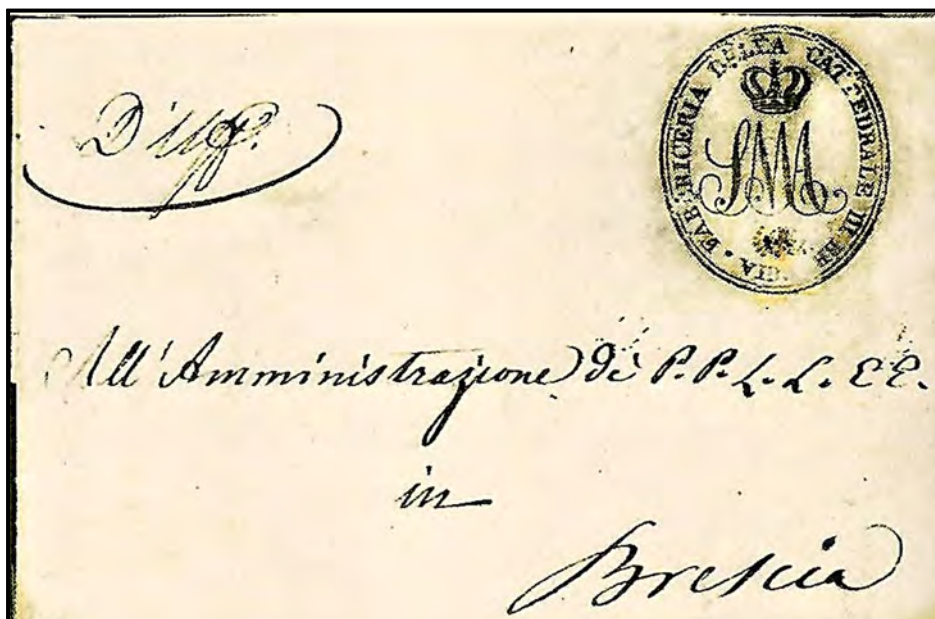 D'uff.
FABBRICERIA DELLA CATTEDRALE DI BRESCIA.
SMA
All'Amministrazione di P.P. L.L. E E.
in
Brescia